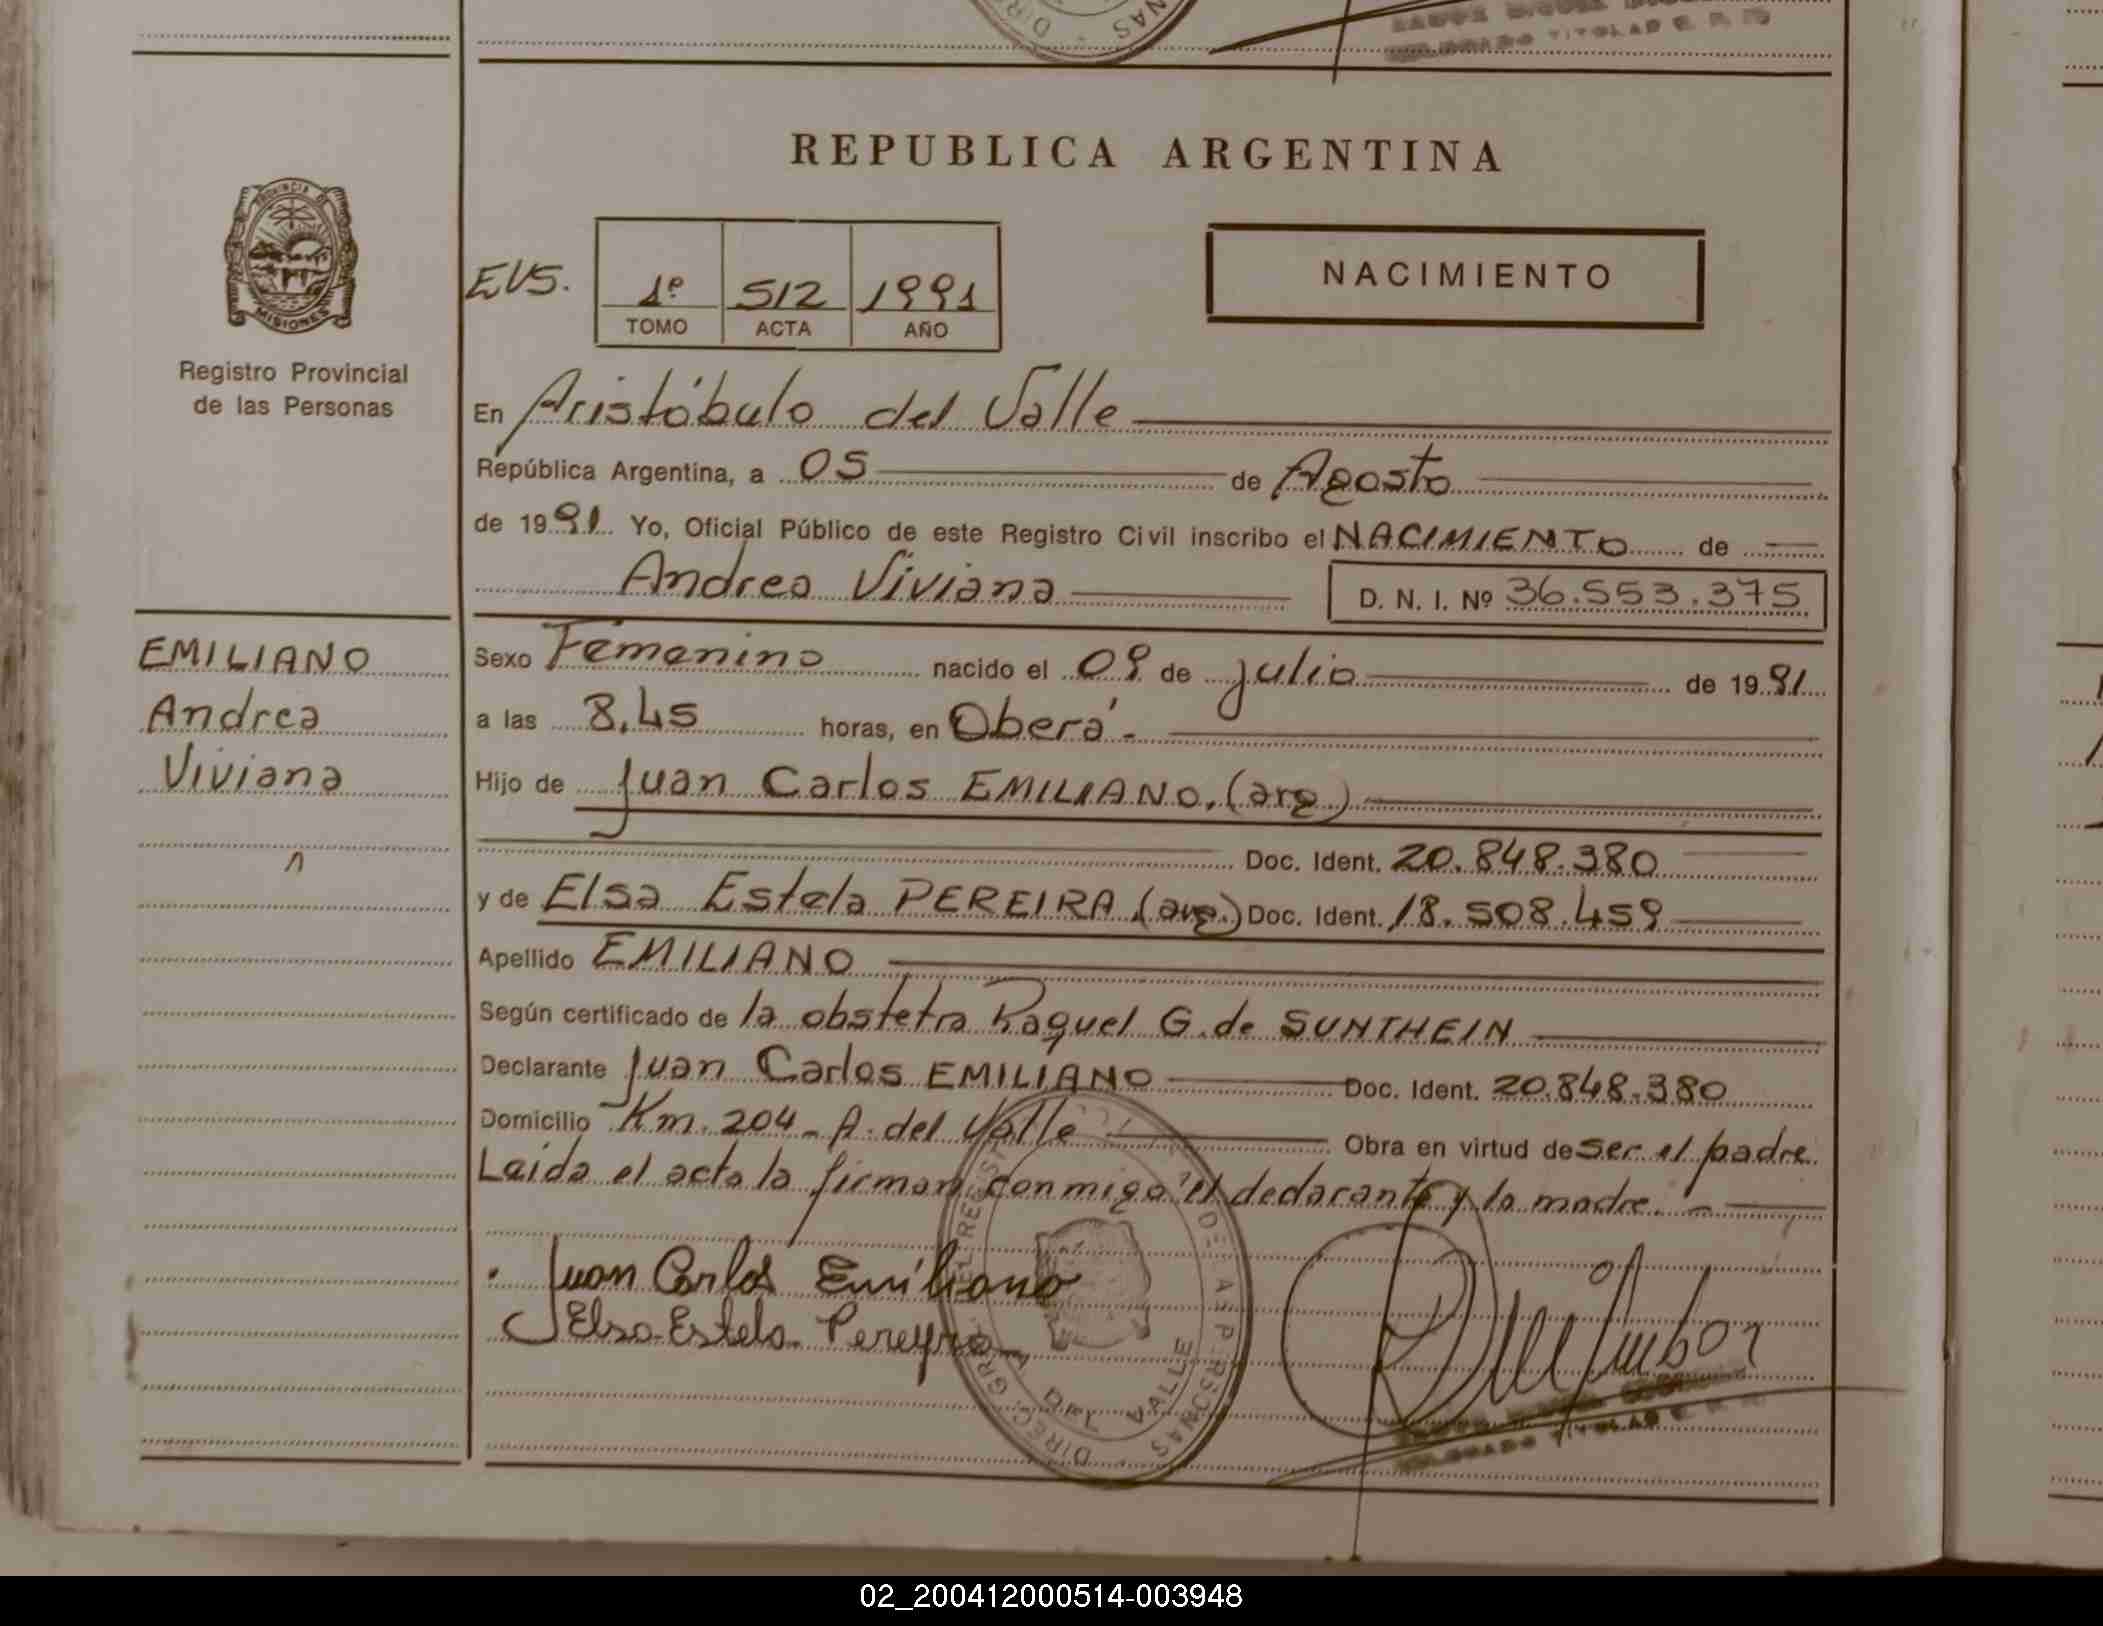 REPUBLICA ARGENTINA
PROVINCIA DE
MISIONES
Registro Provincial
de las Personas
EVS.
1º 512 1991
TOMO ACTA AÑO
NACIMIENTO
En Aristóbulo del Valle
República Argentina, a 05 de Agosto
de 1991 Yo, Oficial Público de este Registro Civil inscribo el NACIMIENTO de
Andrea Viviana D. N. I. Nº 36.553.375
EMILIANO
Andrea
Viviana
Sexo Femenino nacido el 09 de julio de 1991
a las 8,45 horas, en Oberá.-
Hijo de Juan Carlos EMILIANO, (arg)
Doc. Ident. 20.848.380
y de Elsa Estela PEREIRA, (arg.) Doc. Ident. 18.508.459
Apellido EMILIANO
Según certificado de la obstetra Raquel G. de SUNTHEIN
Declarante Juan Carlos EMILIANO Doc. Ident. 20.848.380
Domicilio Km. 204 - A. del Valle Obra en virtud de ser el padre.
Leída el acta la firman conmigo el declarante y la madre. -
Juan Carlos Emiliano
Elsa Estela Pereyra
DEL VALLE
TITULAR
02_200412000514-003948